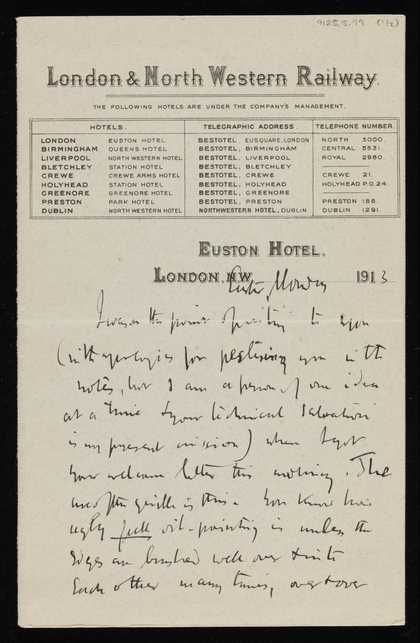 9125.5.19 (1/2)
London & North Western Railway.
THE FOLLOWING HOTELS ARE UNDER THE COMPANY'S MANAGEMENT.
HOTELS. TELEGRAPHIC ADDRESS TELEPHONE NUMBER.
LONDON EUSTON HOTEL BESTOTEL EUSQUARE. LONDON NORTH 3000.
BIRMINGHAM QUEENS HOTEL BESTOTEL, BIRMINGHAM CENTRAL 5531.
LIVERPOOL NORTH WESTERN HOTEL BESTOTEL, LIVERPOOL ROYAL 2980.
BLETCHLEY STATION HOTEL BESTOTEL, BLETCHLEY
CREWE CREWE ARMS HOTEL BESTOTEL, CREWE CREWE 21.
HOLYHEAD STATION HOTEL BESTOTEL, HOLYHEAD HOLYHEAD P.O.24.
GREENORE GREENORE HOTEL BESTOTEL, GREENORE
PRESTON PARK HOTEL BESTOTEL, PRESTON PRESTON 186.
DUBLIN NORTH WESTERN HOTEL NORTHWESTERN HOTEL, DUBLIN DUBLIN 1291.
EUSTON HOTEL.
LONDON. N.W. Easter Monday 1913
I was on the point of writing to you
(with apologies for pestering you with
notes, but I am a person of one idea
at a time & your technical salvation
is my present mission) when I got
your welcome letter this morning. The
use of the quill is this. You know how
ugly full oil-painting is unless the
edges are brushed well over & into
each other many times, over & over